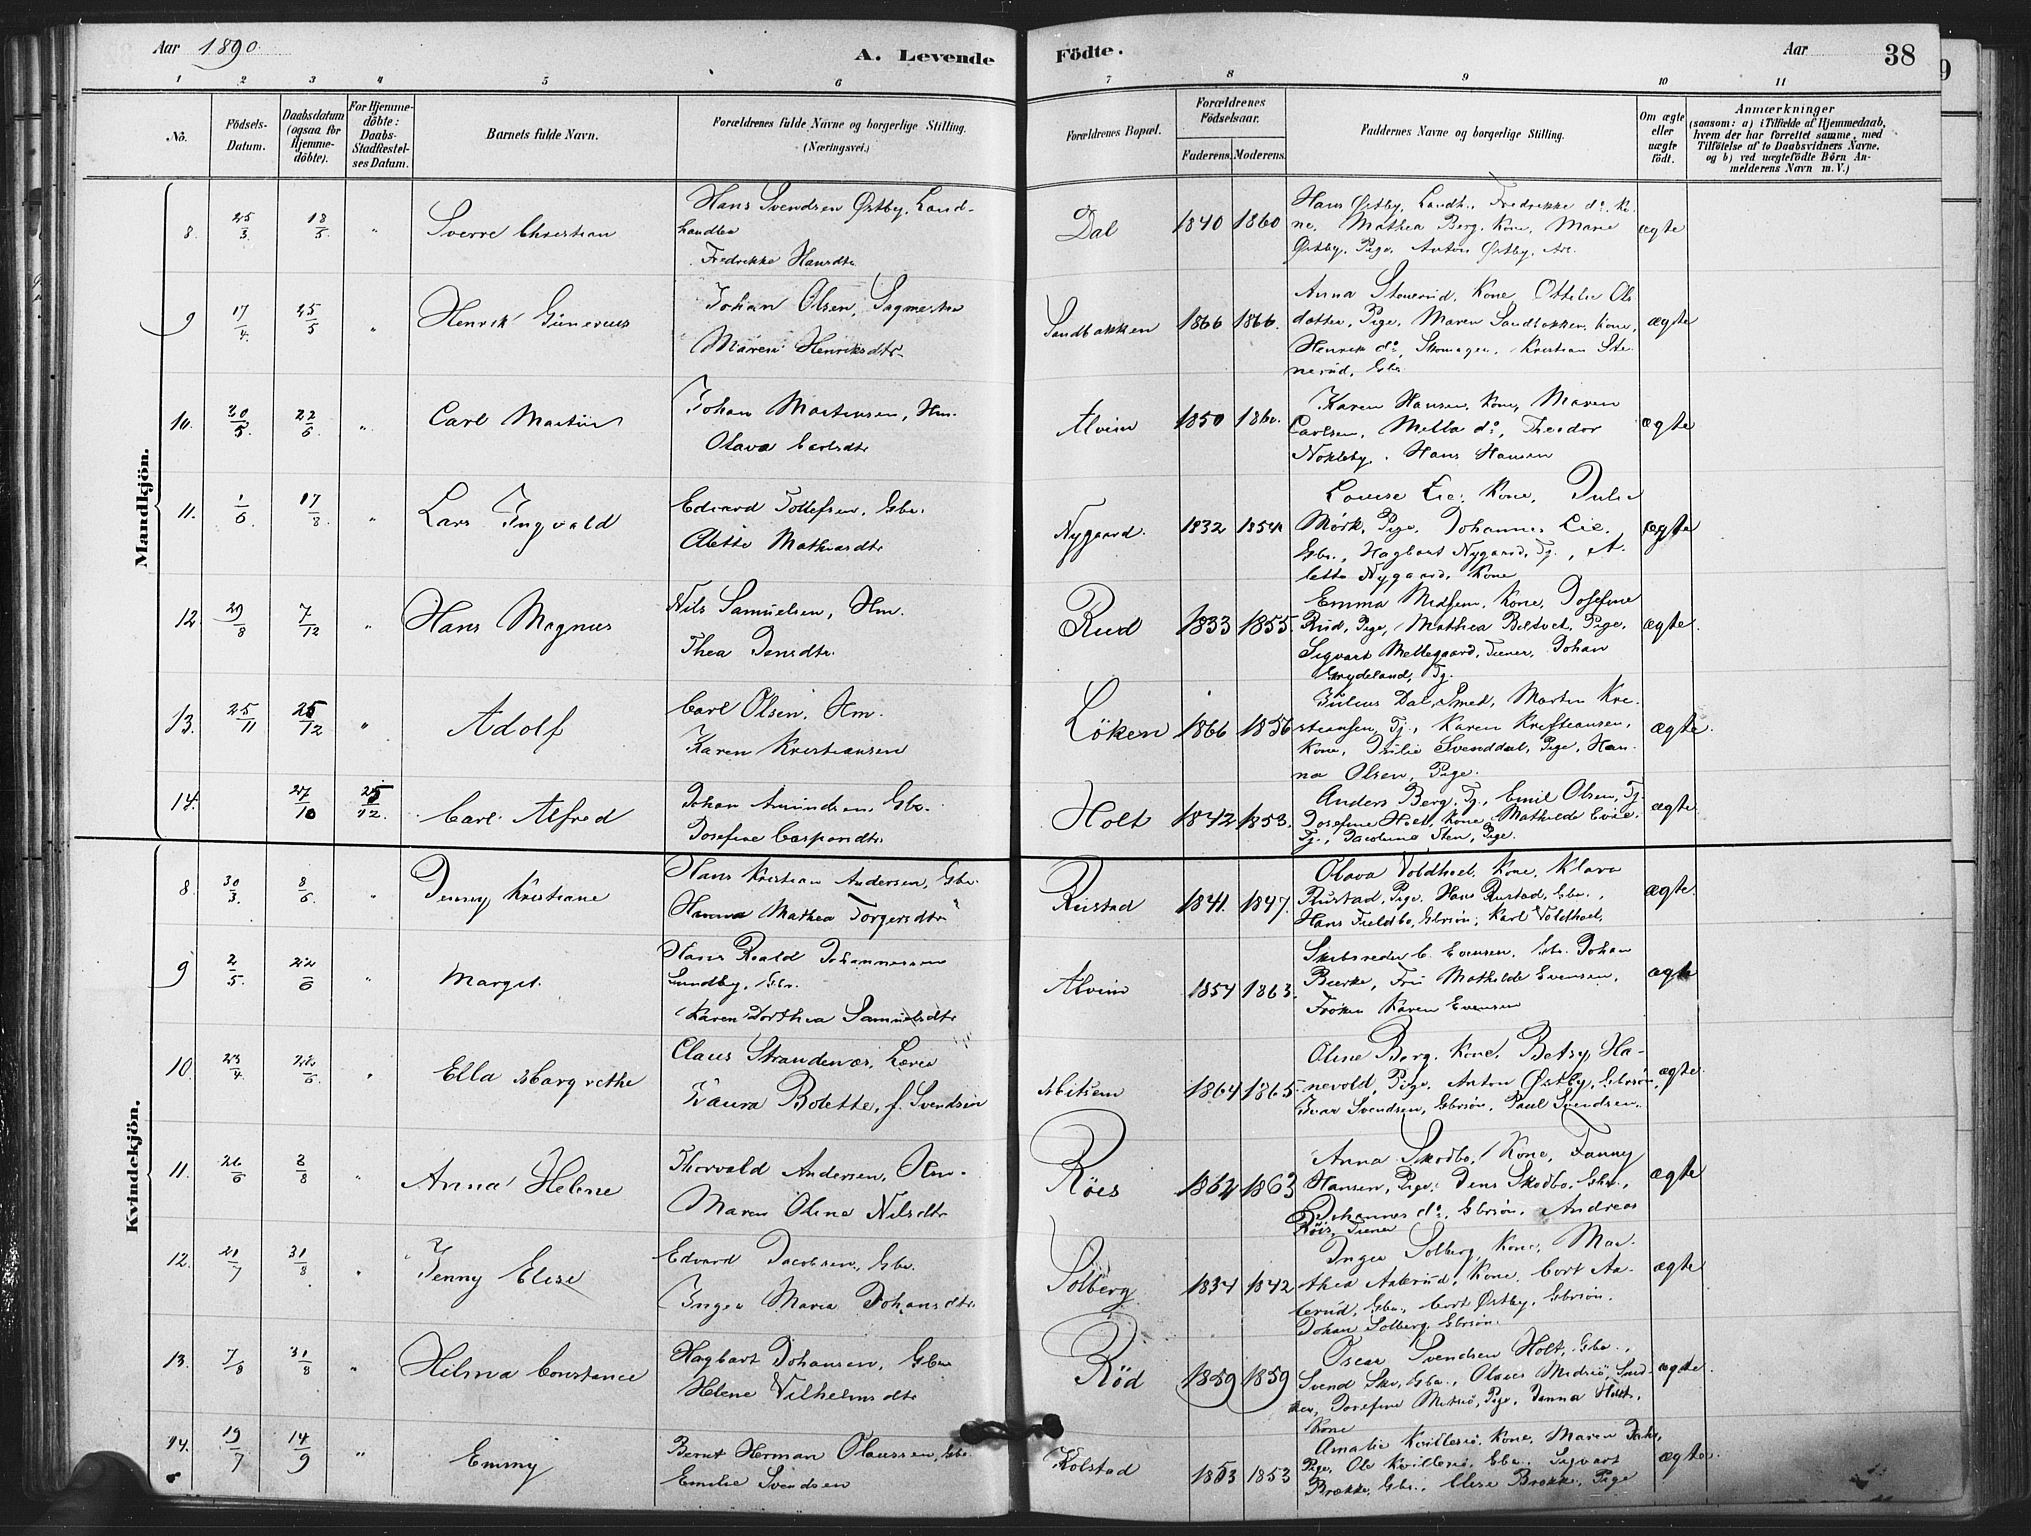 Aar 1890.
A. Levende
Födte.
Aar
38
1 2 3 4 5 6 7 8 9 10 11
No.
Födsels-Datum.
Daabsdatum (ogsaa for Hjemmedöbte).
For Hjemmedöbte: Daabs-Stadfæstelses Datum.
Barnets fulde Navn.
Forældrenes fulde Navne og borgerlige Stilling. (Næringsvei.)
Forældrenes Bopæl.
Forældrenes Födselsaar.
Faderens. Moderens.
Faddernes Navne og borgerlige Stilling.
Om ægte eller uægte födt.
Anmærkninger
(saasom: a) i Tilfælde af Hjemmedaab, hvem der har forrettet samme, med Tilföielse af to Daabsvidners Navne. og b) ved uægtefödte Börn Anmelderens Navn m. V.)
Mandkjön.
8. 25/3 18/5 " Sverre Christian
Hans Svendsen Østby, Landhandler
Fredrikke Hansdtr.
Dal 1840 1860
Hans Østby, Landh., Fredrikke do, Kone, Mathea Berg, Kone, Marie
Østby, Pige, Anton Østby,
ægte
9 17/4 25/5 " Henrik Gunerius
Johan Olsen, Sagmester
Maren Henriksdtr.
Sandbakken 1866 1866.
Anna Stenerud, Kone, Ottilie Olsdatter, Pige, Maren Sandbakken, Kone,
Henrik do, Skomager, Kristian Stenerud, Gbr.
ægte
10. 30/5 22/6 " Carl Martin
Johan Martinsen, Hm.
Olava Carlsdtr
Alvim 1850 1860.
Karen Hansen, Kone, Maren
Carlsen, Mella do, Theodor
Nökleby, Hans Hansen
ægte
11. 1/6 17/8 " Lars Ingvald
Edvard Tollefsen, Gbr.
Alette Mathiasdtr
Nygaard. 1832 1854
Louise Lie, Kone, Julie
Mörk, Pige, Johannes Lie,
Gbr., Hagbart Nygaard, Tj., Alette Nygaard, Kone
ægte
12. 29/8 7/12 " Hans Magnus
Nils Samuelsen, Hm.
Thea Jensdtr.
Rud 1833 1855.
Emma Midsem, Kone, Josefine
Rud, Pige, Mathea Bildtvet, Pige,
Sigvart Mellegaard, Tiener, Johan
Grydeland, Tj.
ægte.
13. 25/11 25/12 " Adolf
Carl Olsen, Hm.
Karen Kristiansen
Löken 1866 1856
Julius Dal, Smed, Martin Kristiansen, Tj., Karen Kristiansen,
Kone, Julie Svenddal, Pige, Hanna Olsen, Pige.
ægte.
14. 27/10 25/12. Carl Alfred
Johan Amundsen, Gbr.
Josefine Caspardtr.
Holt 1842 1853.
Anders Berg, Tj., Emil Olsen, Tj.
Josefine Holt, Kone, Mathilde Evie,
Tj., Jacobine Sten, Pige.
ægte
Kvindekjön.
8. 30/3 8/6 " Jenny Kristiane
Hans Kristian Andersen, Gbr.
Hanna Mathea Torgersdtr
Rustad 1841. 1847.
Olava Voldhoel, Kone, Klara
Rustad, Pige, Hans Rustad, Gbr.,
Hans Fieldbo, Gbrsön, Karl Voldhoel.
ægte
9 2/5 22/6 " Margit.
Hans Roald Johannessen
Lundby, Gbr.
Karen Dorthea Samuelsdtr
Alvim 1854 1863.
Skibsreder C. Evensen, Gbr. Johan
Bierke, Fru Mathilde Evensen,
Fröken Karen Evensen
ægte
10. 23/4 22/6. " Ella Margrethe
Claus Strandenæs, Lærer
Laura Bolette, f. Svendsen
Mitsem 1864 1865.
Oline Berg, Kone, Betsy Hanevold, Pige, Anton Østby, Gbrsön,
Ivar Svendsen, Gbrsön, Paul Svendsen.
ægte.
11. 26/6 3/8 " Anna Helene
Thorvald Andersen, Hm.
Maren Oline Nilsdtr
Röes 1862 1863
Anna Skodbo, Kone, Fanny
Hansen, Pige, Jens Skodbo, Gbr.,
Johannes do, Gbrsön, Andreas
Röis, Tiener
ægte
12. 21/7 31/8 " Jenny Elise
Edvard Jacobsen, Gbr.
Inger Maria Johansdtr.
Solberg. 1834 1842
Inger Solberg, Kone, Mathea Aaserud, Kone, Cort Aaserud, Gbr., Cort Østby, Gbrsön,
Johan Solberg, Gbrsön.
ægte
13. 7/8 31/8 " Hilma Constance
Hagbart Johansen, Gbr.
Helene Vilhelmsdtr
Röd 1859 1859
Oscar Svendsen Holt, Gbr.,
Svend Gbr., Olaus Midsiö, Josefine Midsiö, Pige, Janna Holt,
Kone
ægte.
14. 19/7 14/9 " Emmy
Bernt Herman Olaussen, Gbr.
Emilie Svendsen
Kolstad 1853 1853
Amalie Kvillesiö, Kone, Maren
Pige, Ole Kvillesiö, Gbr., Sigvart
Brække, Gbr., Elise Brække, Pige
ægte.